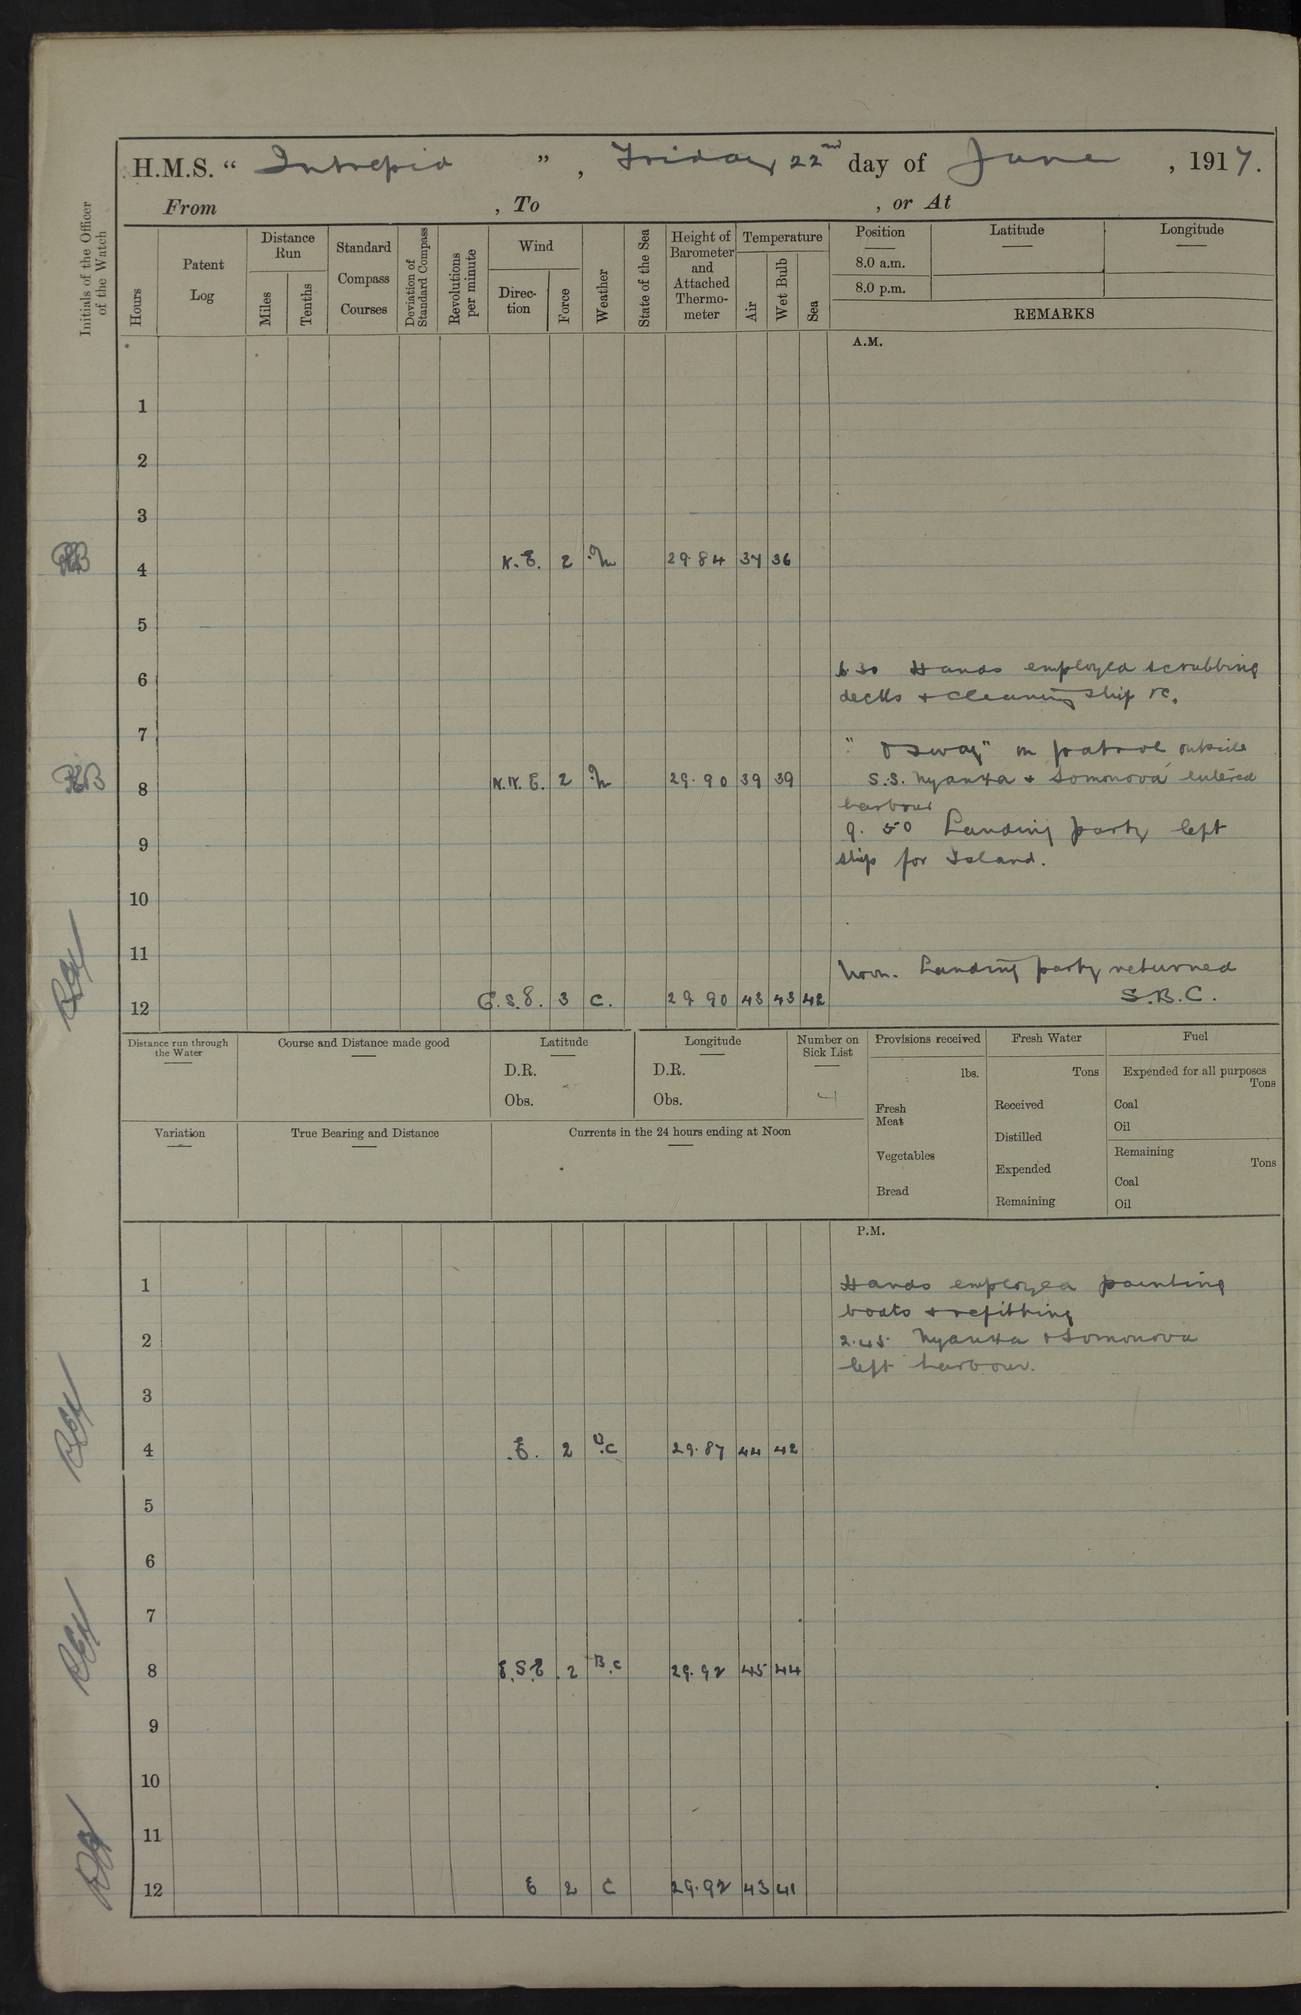 H.M.S. “ Intrepid ” , Friday 22nd day of June , 1917.
From , To , or At
Initials of the Officer of the Watch
Hours
Patent Log
Distance Run
Miles
Tenths
Standard Compass Courses
Deviation of Standard Compass
Revolutions per minute
Wind
Direc-tion
Force
Weather
State of the Sea
Height of Barometer and Attached Thermo-meter
Temperature
Air
Wet Bulb
Sea
Position
8.0 a.m.
8.0 p.m.
Latitude
Longitude
REMARKS
A.M.
1
2
3
4 N.E. 2 29.84 37 36
5
6
6.30 Hands employed scrubbing
decks & cleaning ship &c.
7
on patrol outside
8 N.N.E. 2 29.90 39 39
S.S. Nyanza & Lomonova entered
harbour
9. 50 Landing party left
9
ship for Island.
10
11
Noon. Landing party returned
S.B.C.
12 E.S.E. 3 C. 29 90 43 43 42
Distance run through the Water
Course and Distance made good
Latitude
D.R.
Obs.
Longitude
D.R.
Obs.
Number on Sick List
4
Provisions received
lbs.
Fresh Meat
Vegetables
Bread
Fresh Water
Tons
Received
Distilled
Expended
Remaining
Fuel
Expended for all purposes
Tons
Coal
Oil
Remaining
Tons
Coal
Oil
Variation
True Bearing and Distance
Currents in the 24 hours ending at Noon
P.M.
1 Hands employed painting
boats & refitting
2 2.45 Nyanza & Lomonova
left harbour.
3
4 E. 2 B.C 29.87 44 42
5
6
7
8 E.S.E 2 B.C 29.92 45 44
9
10
11
12 E 2 C 29.92 43 41